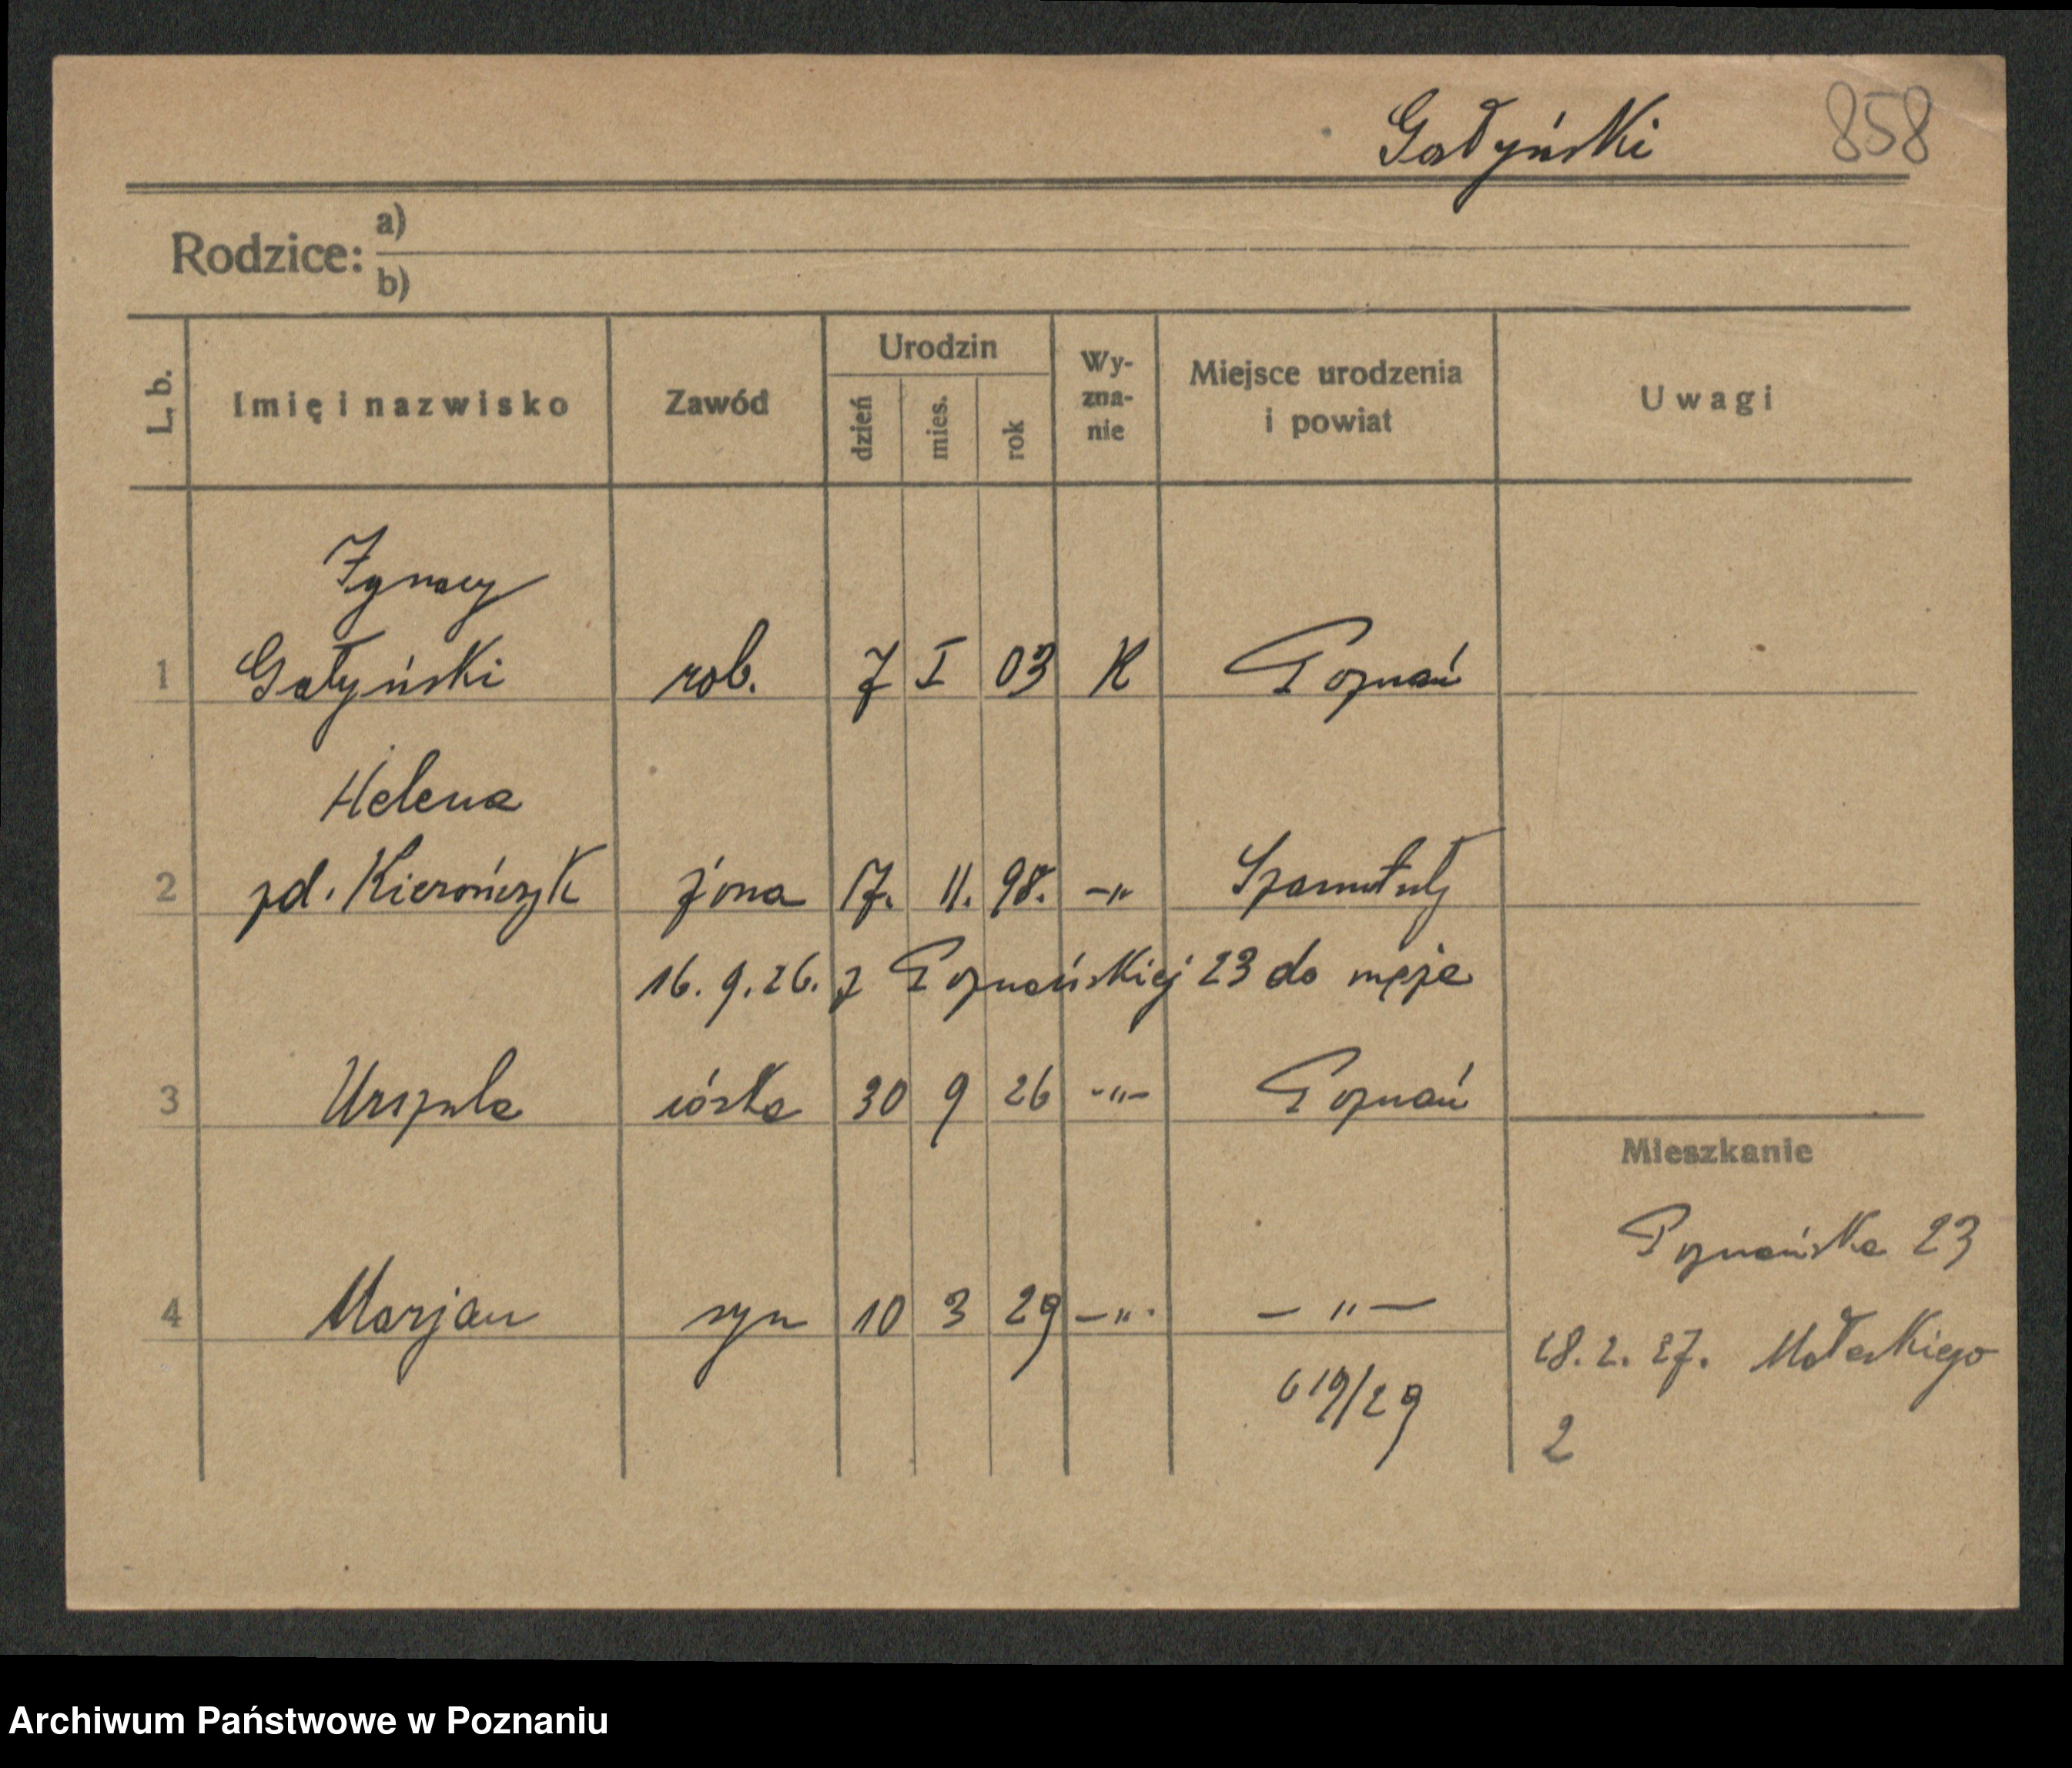 Gałyński 858
Rodzice: a)
b)
L. b. Imię i nazwisko Zawód Urodzin dzień mies. rok Wy-zna-nie Miejsce urodzenia i powiat Uwagi
Ignacy
1 Gałyński rob. 7 I 03 K Poznań
Helena
2 zd. Kierończyk żona 17. 11. 98. -„- Szamotuły
16. 9. 26. z Poznańskiej 23 do męża
3 Urszula córka 30 9 26 -„- Poznań
Mieszkanie
Poznańska 23
4 Marjan syn 10 3 29 -„- -„-
18. 2. 27. Małeckiego
619/29
2
Archiwum Państwowe w Poznaniu